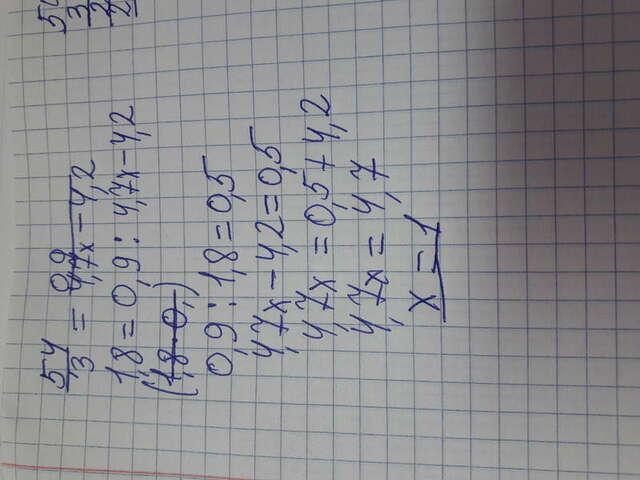 5,4/3 = 0,9/4,7x-4,2
1,8 = 0,9 : 4,7x-4,2
(1,8 · 0,)
0,9 : 1,8 = 0,5
4,7x - 4,2 = 0,5
4,7x = 0,5 + 4,2
4,7x = 4,7
x = 1